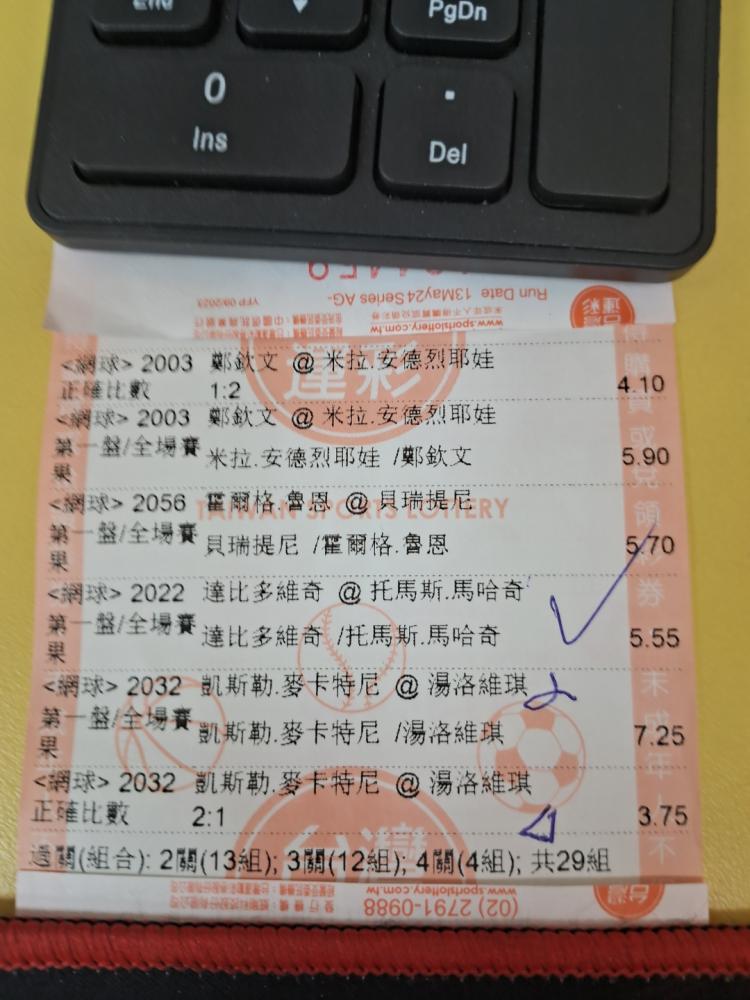 End
PgDn
0
Ins
.
Del
Run Date 13May24 Series AG-
YFP 09/2023
www.sportslottery.com.tw
台灣運彩
運彩
<網球> 2003 鄭欽文 @ 米拉.安德烈耶娃
正確比數 1:2 4.10
<網球> 2003 鄭欽文 @ 米拉.安德烈耶娃
第一盤/全場賽果 米拉.安德烈耶娃 /鄭欽文 5.90
<網球> 2056 霍爾格.魯恩 @ 貝瑞提尼
TAIWAN SPORTS LOTTERY
第一盤/全場賽果 貝瑞提尼 /霍爾格.魯恩 5.70
<網球> 2022 達比多維奇 @ 托馬斯.馬哈奇
第一盤/全場賽果 達比多維奇 /托馬斯.馬哈奇 5.55
<網球> 2032 凱斯勒.麥卡特尼 @ 湯洛維琪
第一盤/全場賽果 凱斯勒.麥卡特尼 /湯洛維琪 7.25
<網球> 2032 凱斯勒.麥卡特尼 @ 湯洛維琪
正確比數 2:1 3.75
過關(組合): 2關(13組); 3關(12組); 4關(4組); 共29組
台灣
www.sportslottery.com.tw
(02) 2791-0988